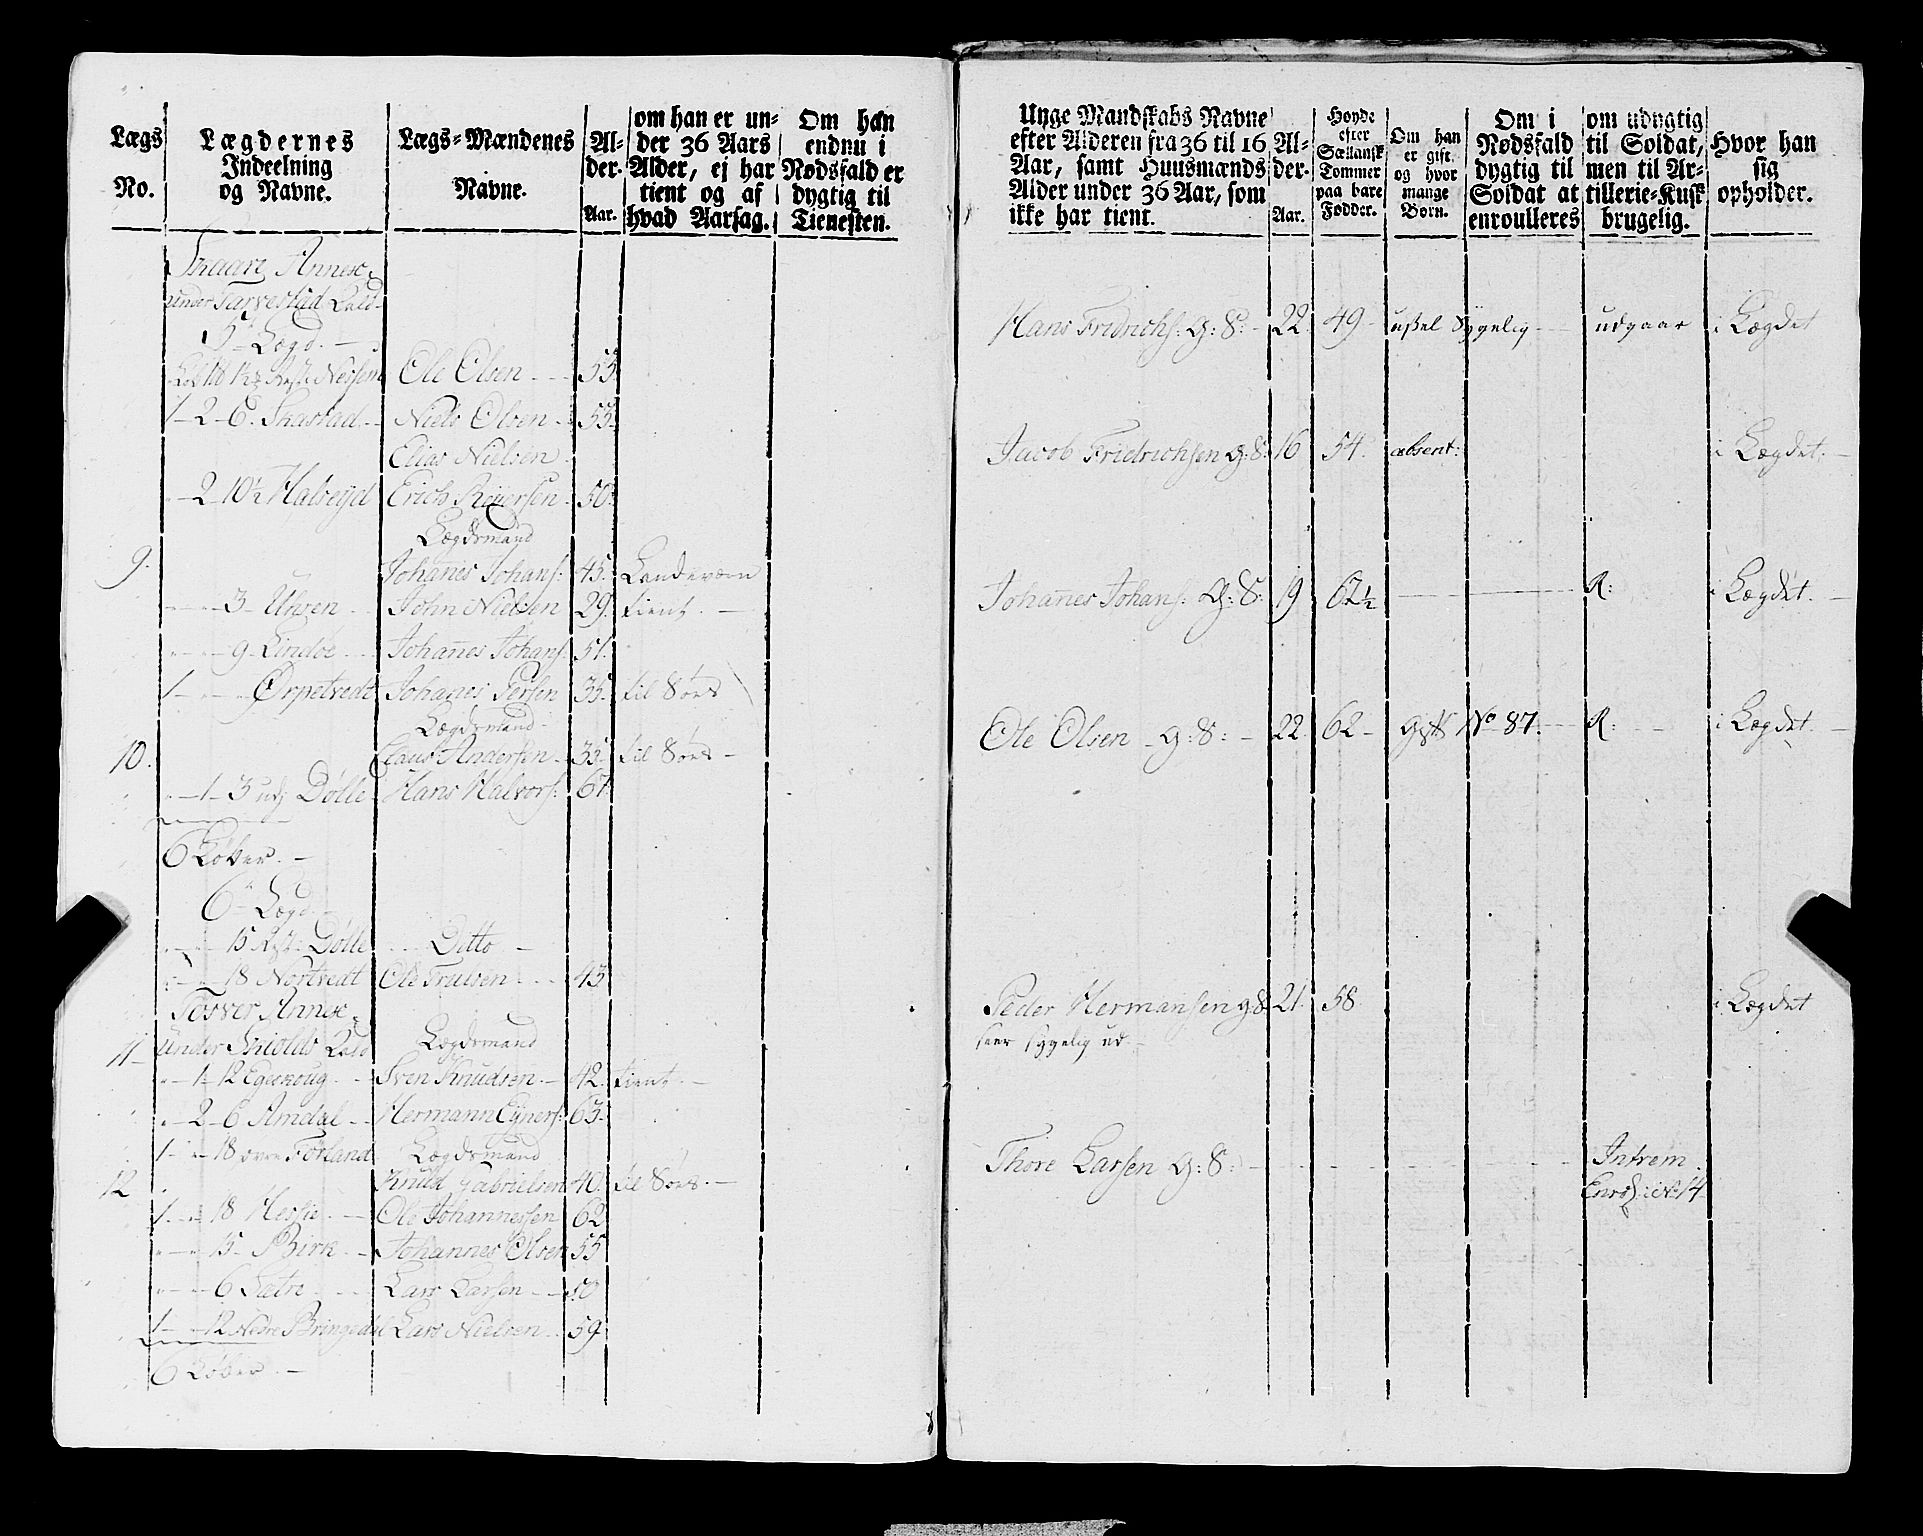 Lægs No.
Lægdernes Indeelning og Navne.
Lægs-Mændenes Navne.
Alder. Aar.
om han er under 36 Aars Alder, ej har tient og af hvad Aarsag.
Om han endnu i Nødsfald er dygtig til Tienesten.
Annex
under Tarvestad Kald
5te Lægd.
Ole Olsen 55
1-2-6 Skastad Niels Olsen 55
Elias Nielsen
2 10½ Halseyd Erich 50
Lægdsmand
9. Johanes Johans: 45 Landeværn
3 Uhren John Nielsen 29 tient
9 Lindoe Johanes Johans: 51
1 Ørpetvedt Johanes Persen 35 til Søes
Lægdsmand
10. Claus Andersen 35 til Søes
1 3 Dølle Hans Halvors: 67
6 Løber.
6te Lægd
15 Dølle Ditto
18 Nortvedt Ole Truesen 43
Tosver Annex
11 under Skiolds Kald Lægdsmand
1 12 Egeskoug Sven Knudsen 42 tient
2 6 Amdal Hermann 63
1 18 øvre Førland Lægdsmand
12 Knud Gabrielsen 40 til Søes
1 18 Ole Johannessen 62
15 Birk Johannes Olsen 55
6 Sætre Lars Larsen 50
1 12 Nedre Bringedal Lars Nielsen 59
6 Løber
Unge Mandskabs Navne efter Alderen fra 36 til 16 Aar, samt Huusmænds Alder under 36 Aar, som ikke har tient.
Alder. Aar.
Høyde efter Sællansk Tommer paa bare Fødder.
Om han er gift, og hvor mange Børn.
Om i Nødsfald dygtig til Soldat at enroulleres
om udygtig til Soldat, men til Artillerie-Kusk brugelig.
Hvor han sig opholder.
Hans Fridrichs: G: S: 22 49 ussel sygelig udgaar i Lægdet
Jacob Fridrichsen G: S: 16 54 absent: i Lægdet
Johanes Johans: G: S: 19 62½ R: i Lægdet
Ole Olsen G: S: 22 62 gift No 87. R: i Lægdet
Peder Hermansen G: S 21 58 i Lægdet
seer sygelig ud
Thore Larsen G: S: Intrem
14